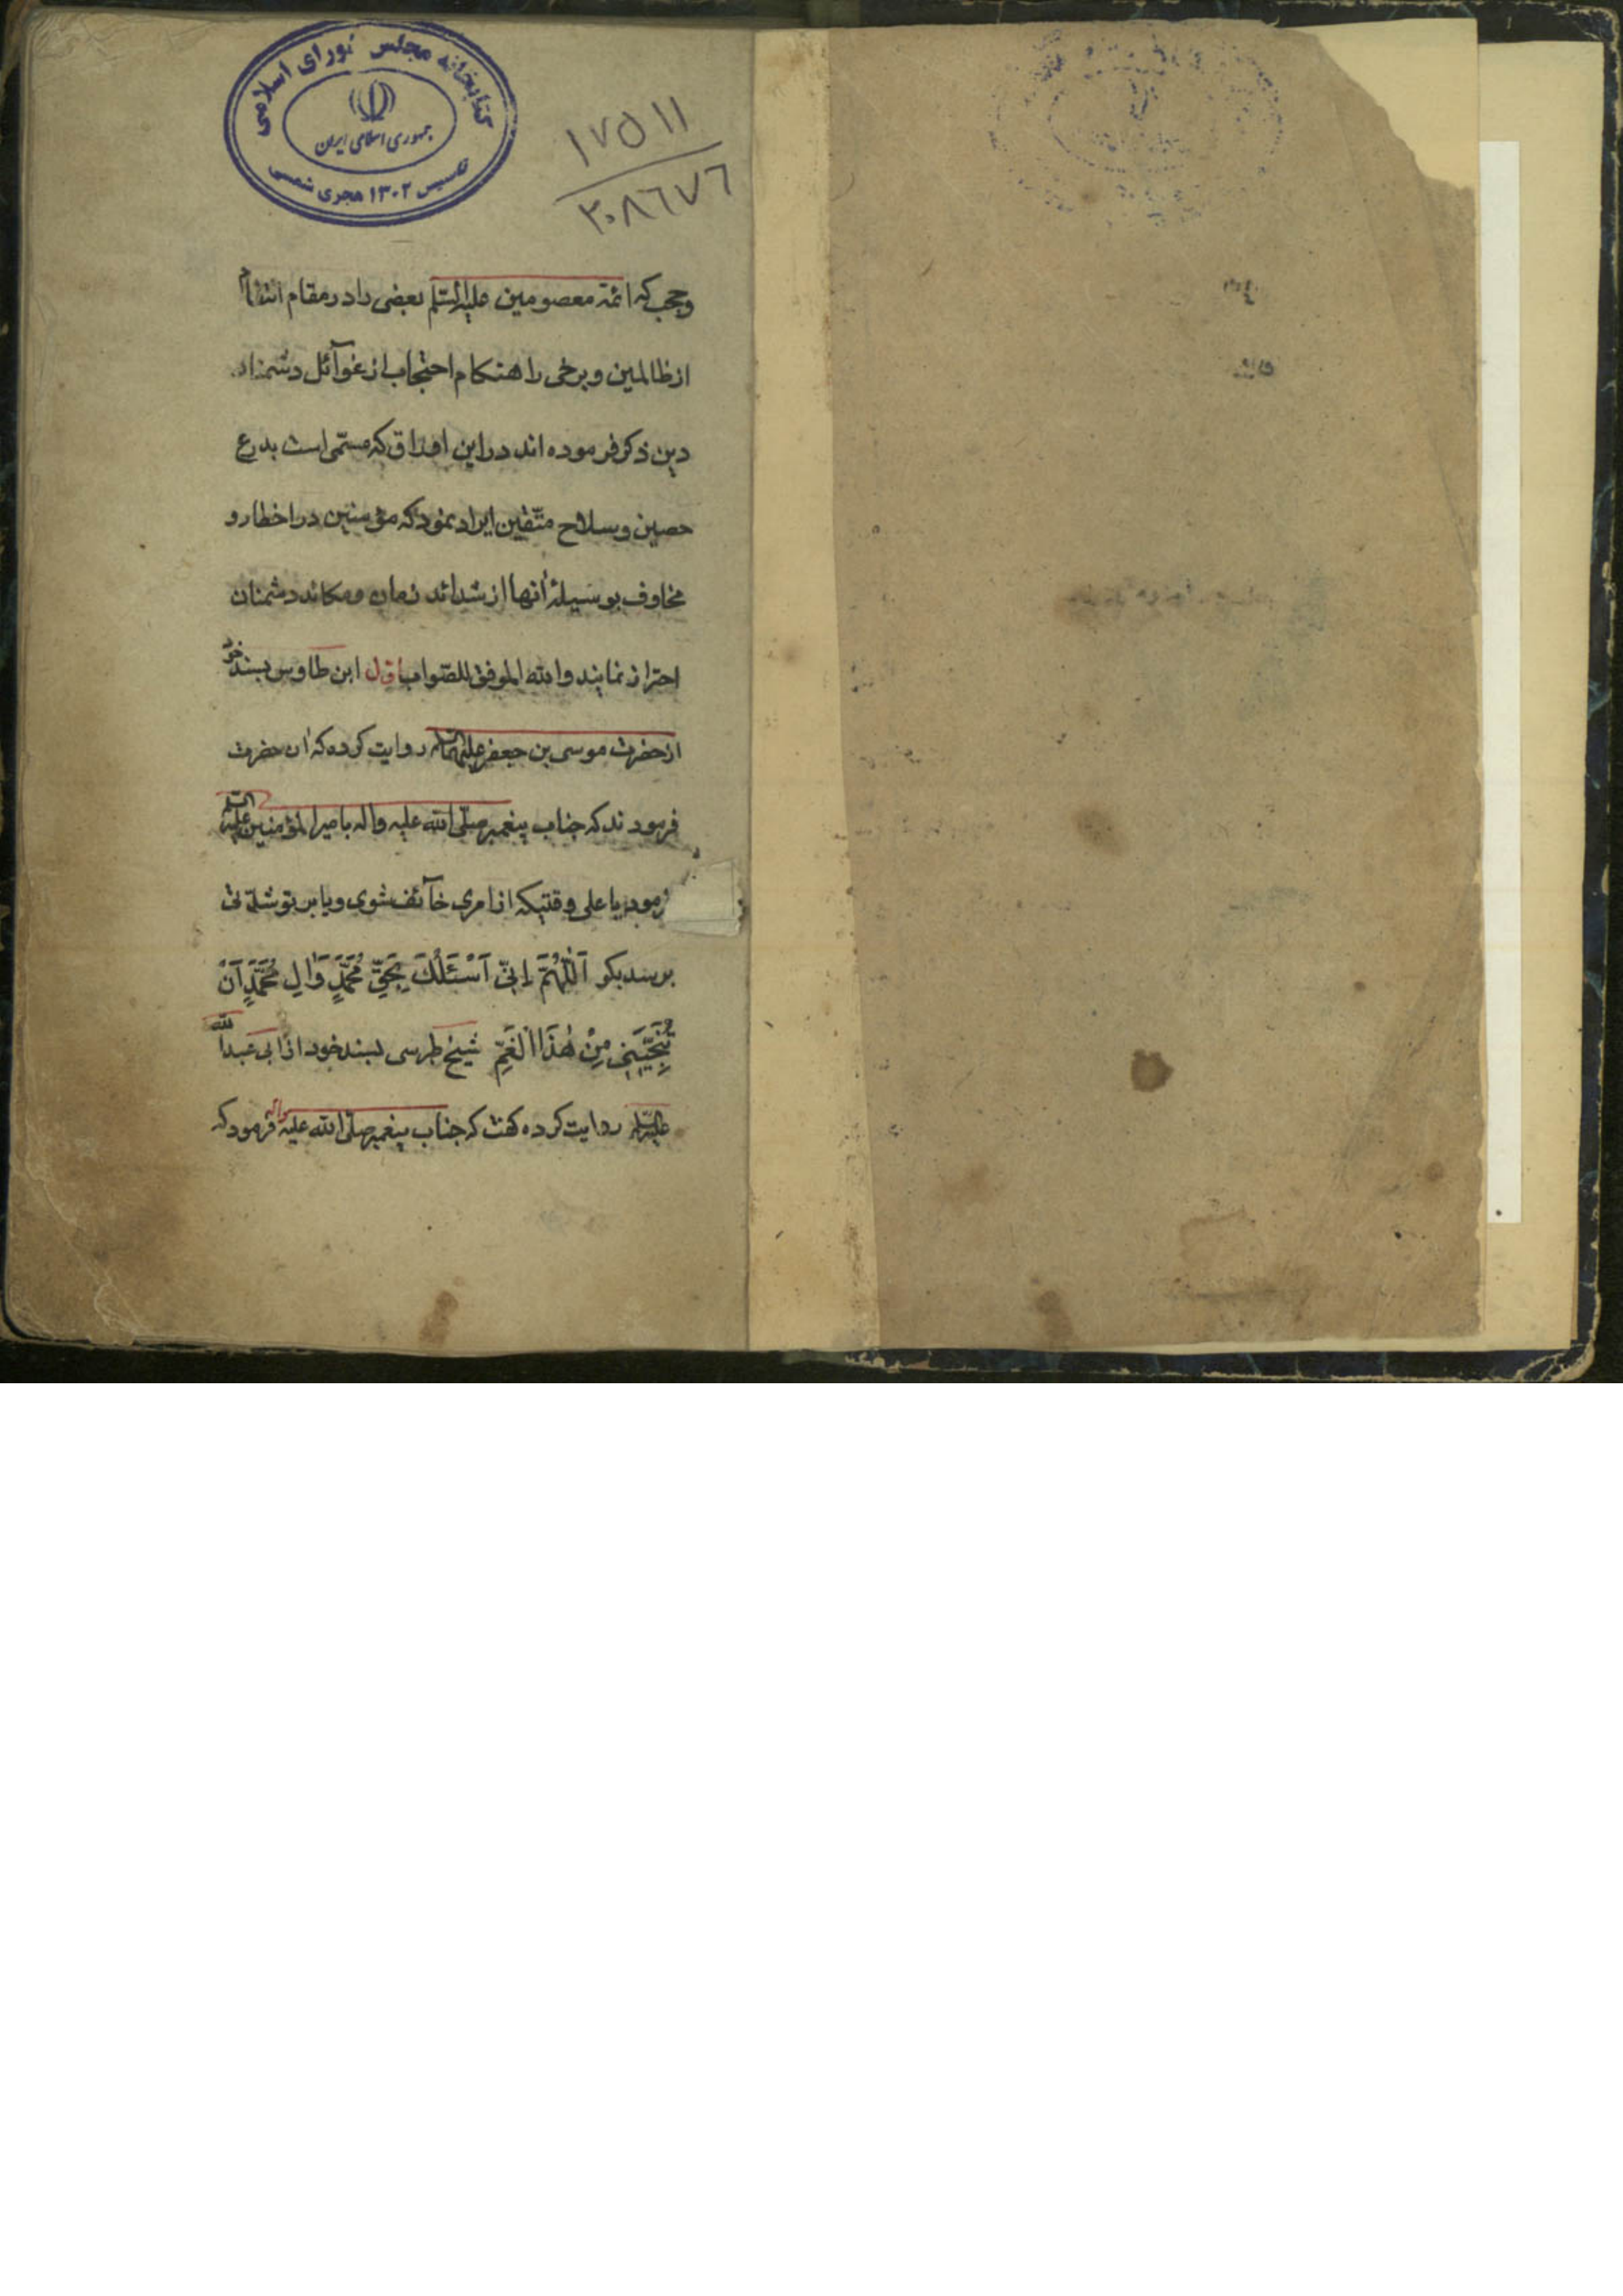 کتابخانه مجلس شورای اسلامی
جمهوری اسلامی ایران
تاسیس ۱۳۰۲ هجری شمسی
۱۷۵۱۱
۲۰۸۶۷۶
وحجب که ائمّه معصومین علیهم السّلم بعضی را در مقام انتقام
از ظالمین و برخی را هنکام احتجاب از غوآئل دشمنان
دین ذکر فرموده اند در این اوراق که مسمّی است بدرع
حصین و سلاح متّقین ایراد نمود که مؤمنین در اخطار و
مخاوف بوسیلهٔ آنها از شدائد زمان و مکائد دشمنان
احتراز نمایند والله الموفق للصّواب اوّل ابن طاوس بسند خود
از حضرت موسی بن جعفر علیهما السلم روایت کرده که ان حضرت
فرمودند که جناب پیغمبر صلّی الله علیه واله بامیرالمؤمنین علیه السلم
فرمود یا علی وقتیکه از امری خآئف شوی و یا بر تو شدّتی
برسد بکو اَللّٰهُمَّ اِنّی اَسْئَلُكَ بِحَقِّ مُحَمَّدٍ وَالِ مُحَمَّدٍ اَنْ
تُنَجِّیَنی مِنْ هٰذَا الْغَمِّ شیخ طبرسی بسند خود از ابی عبدالله
علیه السلم روایت کرده کفت که جناب پیغمبر صلّی الله علیه واله فرمود که